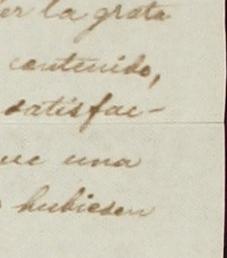 er la grata
contenido,
satisfac-
ue una
hubiesen